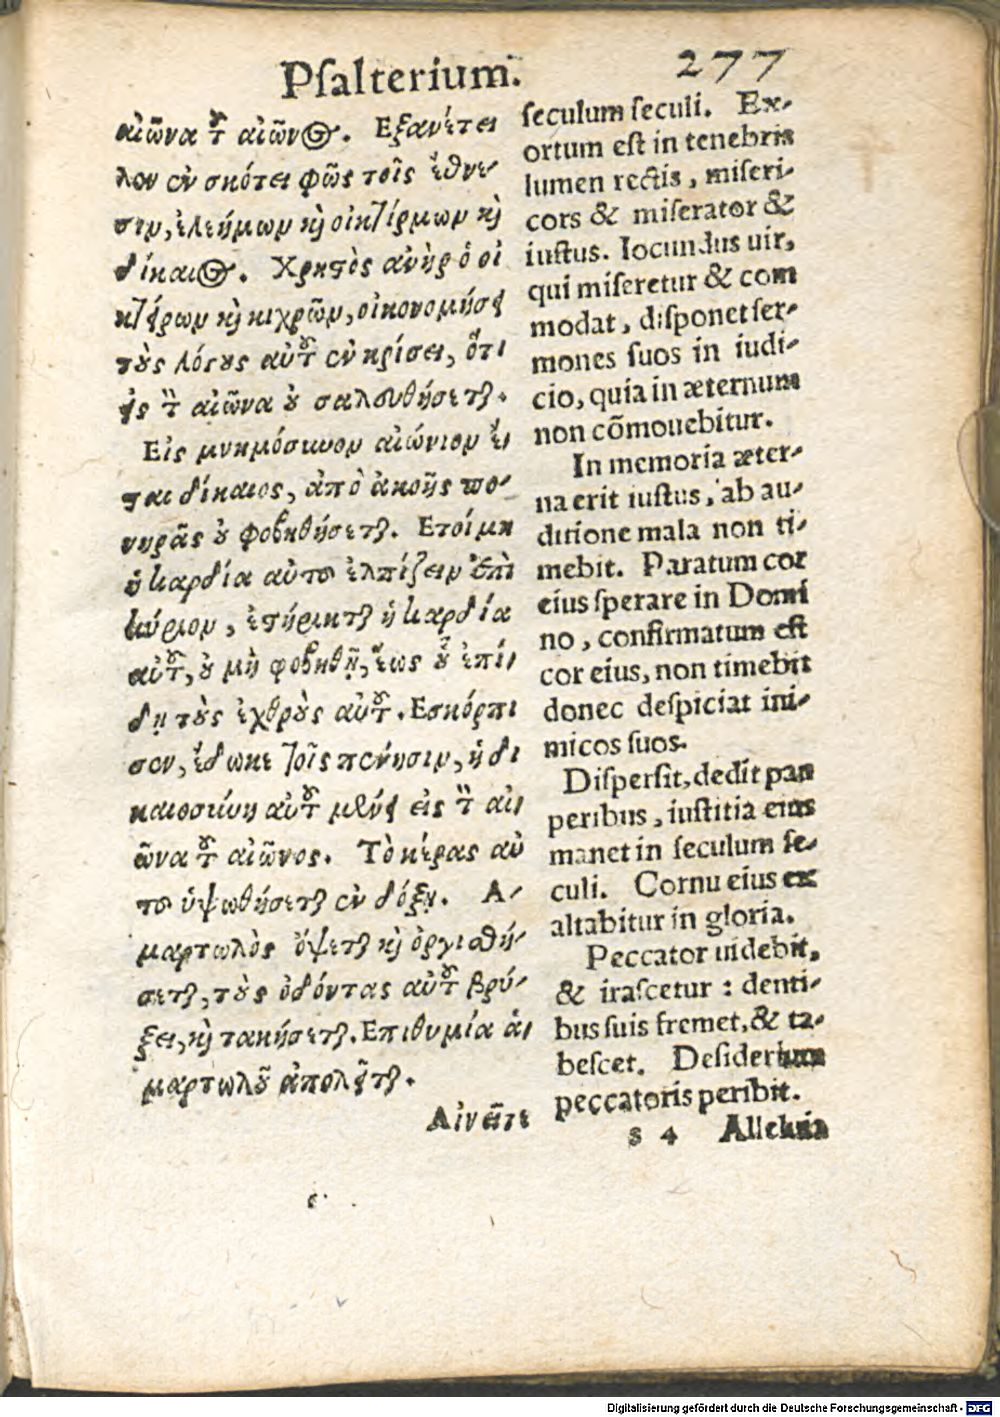 Pſalterium. 277
αἰῶνα τοῦ αἰῶνος. Εξανέτει
λον ἐν σκότει φῶς τοῖς ἔθνε-
σιν, ἐλεήμων καὶ οἰκτίρμων καὶ
δίκαιος. Χρηστὸς ἀνὴρ ὁ οἰ
κτείρων καὶ κιχρῶν, οἰκονομήσει
τοὺς λόγους αὐτοῦ ἐν κρίσει, ὅτι
εἰς τὸν αἰῶνα οὐ σαλευθήσεται.
Εἰς μνημόσυνον αἰώνιον ἔ-
σται δίκαιος, ἀπὸ ἀκοῆς πο-
νηρᾶς οὐ φοβηθήσεται. Ετοίμη
ἡ καρδία αὐτοῦ ἐλπίζειν ἐπὶ
κύριον, ἐστήρικται ἡ καρδία
αὐτοῦ, οὐ μὴ φοβηθῇ, ἕως οὗ ἐπί-
δῃ τοὺς ἐχθροὺς αὐτοῦ. Εσκόρπι
σεν, ἔδωκε τοῖς πένησιν, ἡ δι
καιοσύνη αὐτοῦ μένει εἰς τὸν αἰ-
ῶνα τοῦ αἰῶνος. Τὸ κέρας αὐ
τοῦ ὑψωθήσεται ἐν δόξῃ. Α-
μαρτωλὸς ὄψεται καὶ ὀργισθή-
σεται, τοὺς ὀδόντας αὐτοῦ βρύ-
ξει, καὶ τακήσεται. Επιθυμία ἁ-
μαρτωλοῦ ἀπολεῖται.
Αἰνεῖτε
ſeculum ſeculi. Ex-
ortum eſt in tenebris
lumen rectis, miſeri-
cors & miſerator &
iuſtus. Iocundus uir,
qui miſeretur & com
modat, diſponet ſer-
mones ſuos in iudi-
cio, quia in æternum
non cõmouebitur.
In memoria æter-
na erit iuſtus, ab au-
ditione mala non ti-
mebit. Paratum cor
eius ſperare in Domi
no, confirmatum eſt
cor eius, non timebit
donec deſpiciat ini-
micos ſuos.
Diſperſit, dedit pau
peribus, iuſtitia eius
manet in ſeculum ſe-
culi. Cornu eius ex
altabitur in gloria.
Peccator uidebit,
& iraſcetur : denti-
bus ſuis fremet, & ta-
beſcet. Deſiderium
peccatoris peribit.
s 4 Alleluia
Digitalisierung gefördert durch die Deutsche Forschungsgemeinschaft - DFG